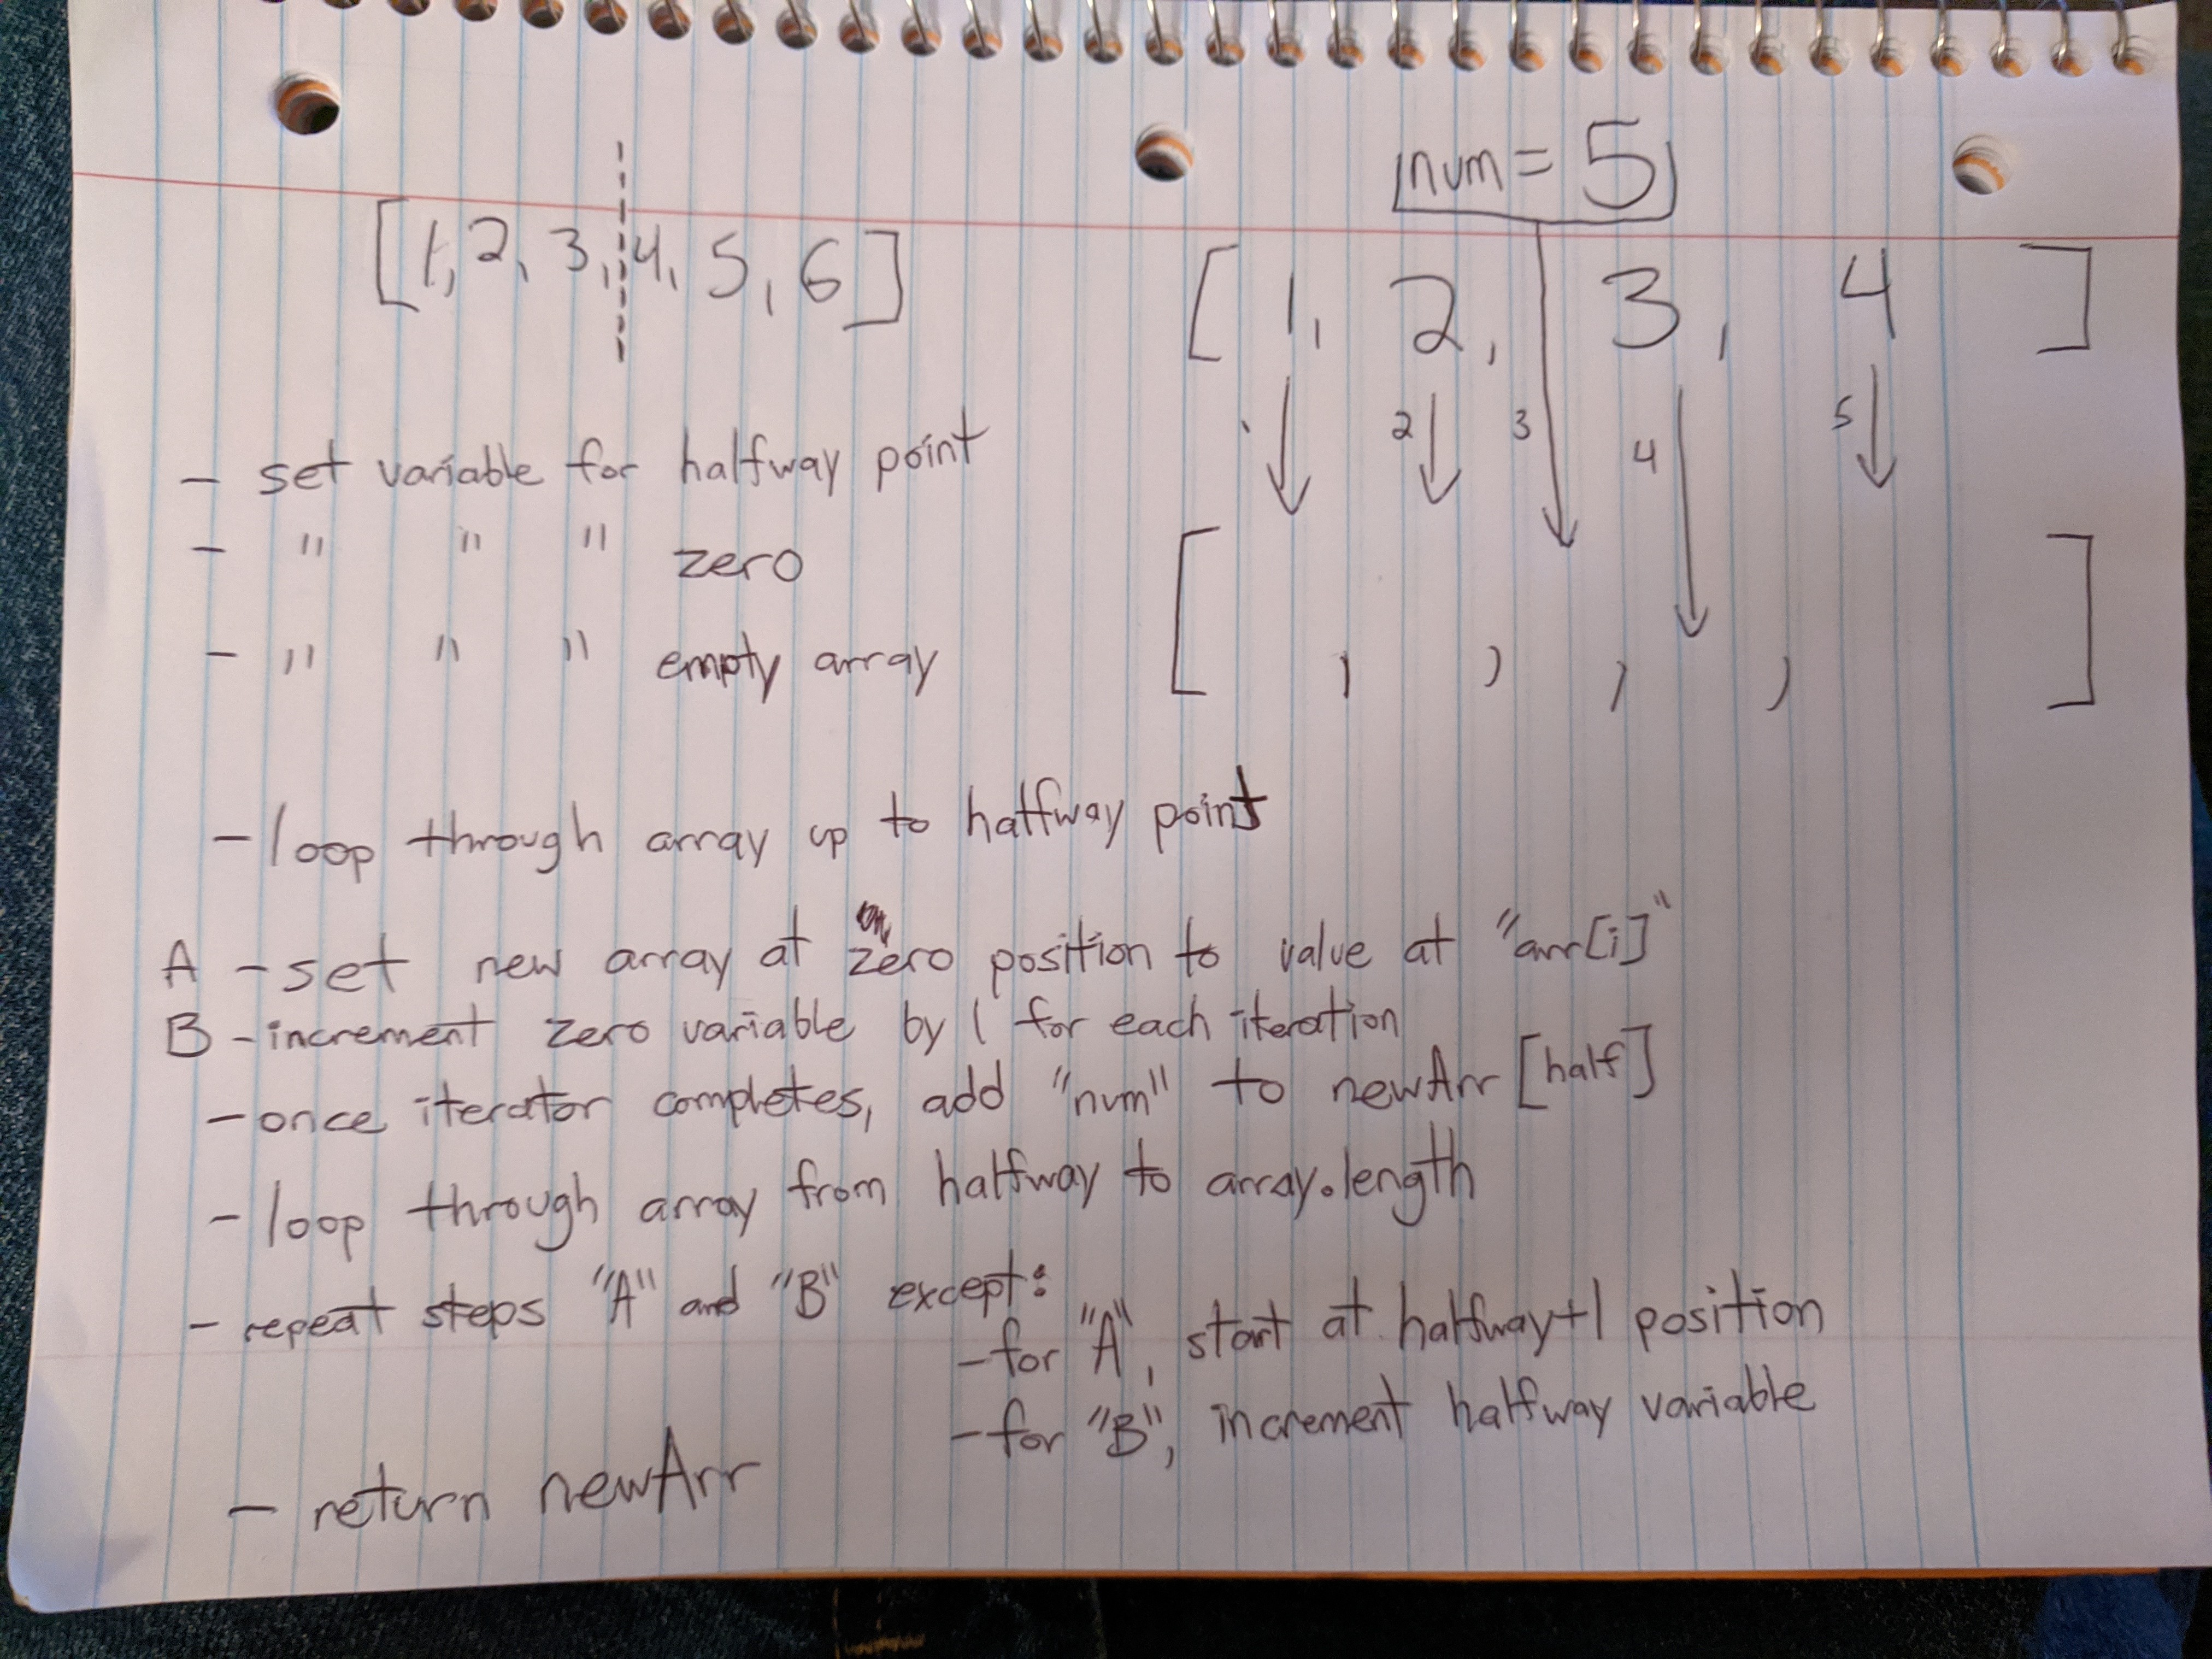 num = 5
[1, 2, 3, 4, 5, 6]
[ 1, 2, 3, 4 ]
2 3 4 5
- set variable for halfway point
- " " " zero
- " " " empty array
[ , , , , ]
- loop through array up to halfway point
A - set new array at zero position to value at "arr[i]"
B - increment zero variable by 1 for each iteration
- once iterator completes, add "num" to newArr [half]
- loop through array from halfway to array.length
- repeat steps "A" and "B" except:
- for "A", start at halfway+1 position
- for "B", increment halfway variable
- return newArr